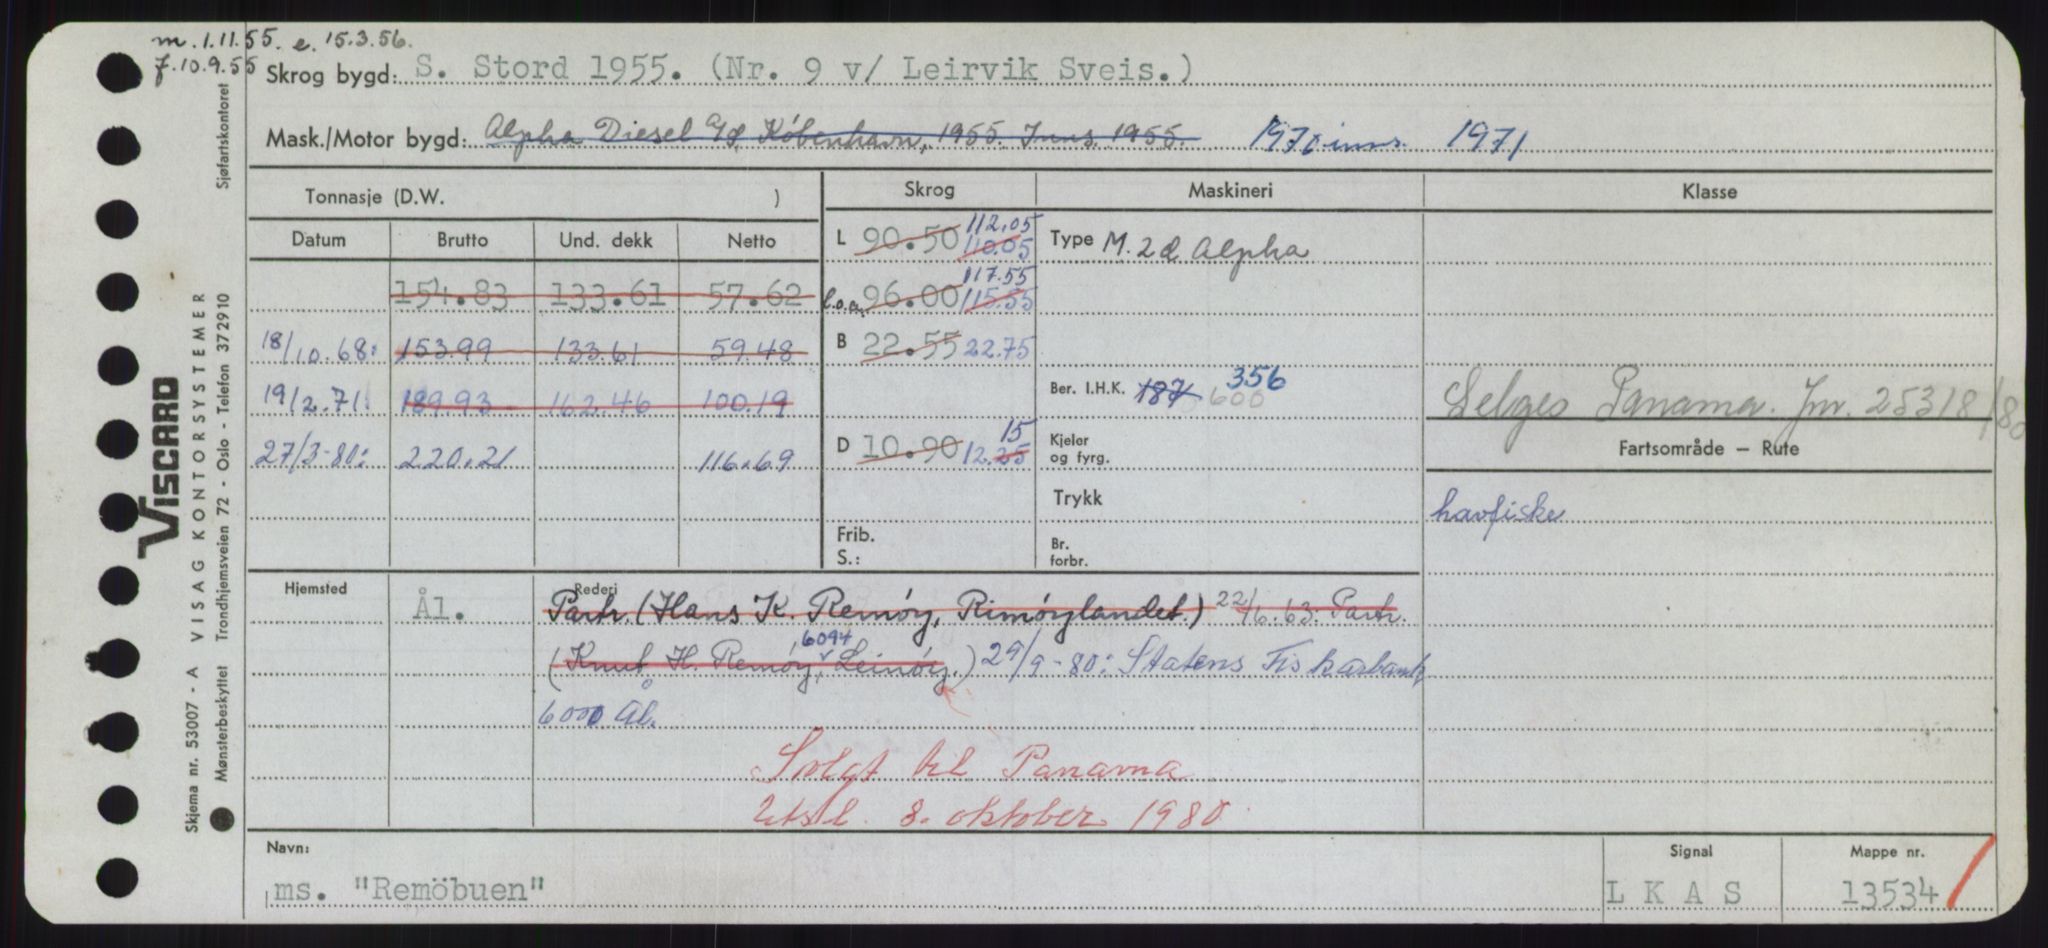 m. 1.11.55. e. 15.3.56.
f. 10.9.55
Skrog bygd: S. Stord 1955. (Nr. 9 v/ Leirvik Sveis.)
Mask./Motor bygd: Alpha Diesel A/S, København, 1955. Inns. 1955. 1970 inns. 1971
Tonnasje (D.W. )
Skrog
Maskineri
Klasse
Datum Brutto Und. dekk Netto
154.83 133.61 57.62
18/10.68: 153.99 133.61 59.48
19/2.71 189.93 162.46 100.19
27/3-80: 220.21 116.69
L 90.50 110.05 112.05
l.o.a. 96.00 115.55 117.55
B 22.55 22.75
D 10.90 12.25 15
Frib.
S.:
Type M. 2d Alpha
Ber. I.H.K. 187 600 356
Kjeler
og fyrg.
Trykk
Br.
forbr.
Selges Panama. Jnr. 25318/80
Fartsområde – Rute
havfiske
Hjemsted
Rederi
Ål. Partr. (Hans K. Remøy, Rimøylandet.) 22/6.63: Partr.
(Knut H. Remøy, 6094 Leinøy.) 29/9-80: Statens Fiskarbank,
6000 Ål.
Solgt til Panama
Utsl. 8. oktober 1980
Navn:
ms. "Remöbuen"
Signal
L K A S
Mappe nr.
13534
VISCARD
VISAG KONTORSYSTEMER
Skjema nr. 53007 - A
Mønsterbeskyttet Trondhjemsveien 72 - Oslo - Telefon 372910
Sjøfartskontoret